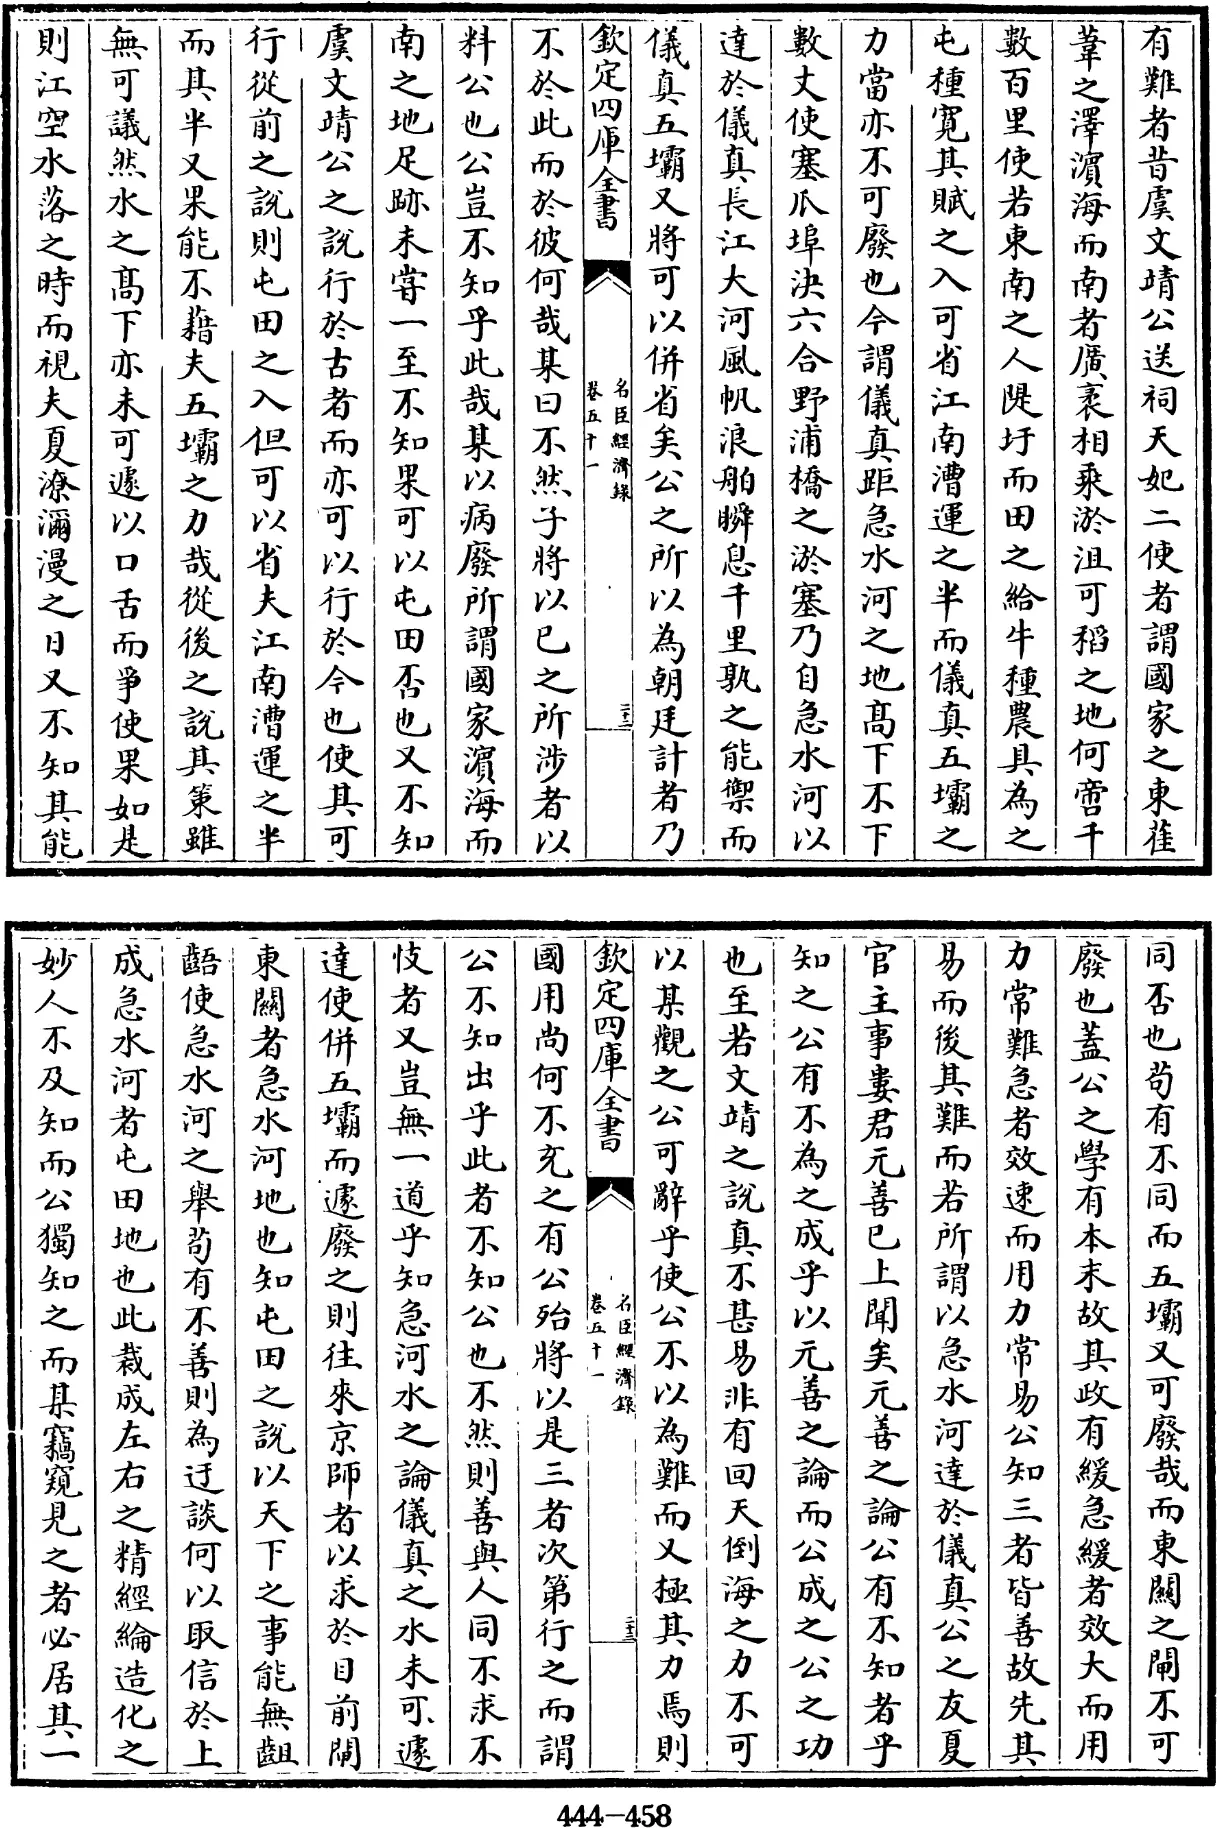 有難者昔虞文靖公送祠天妃二使者謂國家之東萑
葦之澤濵海而南者廣袤相乘淤沮可稻之地何啻千
數百里使若東南之人隄圩而田之給牛種農具為之
屯種寛其賦之入可省江南漕運之半而儀真五壩之
力當亦不可廢也今謂儀真距急水河之地髙下不下
數丈使塞瓜埠決六合野浦橋之淤塞乃自急水河以
達於儀真長江大河風帆浪舶瞬息千里孰之能禦而
儀真五壩又將可以併省矣公之所以為朝廷計者乃
欽定四庫全書
名臣經濟録
卷五十一
三十二
不於此而於彼何哉某曰不然子將以已之所渉者以
料公也公豈不知乎此哉某以病廢所謂國家濵海而
南之地足跡未嘗一至不知果可以屯田否也又不知
虞文靖公之説行於古者而亦可以行於今也使其可
行從前之説則屯田之入但可以省夫江南漕運之半
而其半又果能不藉夫五壩之力哉從後之説其策雖
無可議然水之髙下亦未可遽以口舌而爭使果如是
則江空水落之時而視夫夏潦瀰漫之日又不知其能
同否也茍有不同而五壩又可廢哉而東闗之閘不可
廢也蓋公之學有本末故其政有緩急緩者效大而用
力常難急者效速而用力常易公知三者皆善故先其
易而後其難而若所謂以急水河達於儀真公之友夏
官主事婁君元善已上聞矣元善之論公有不知者乎
知之公有不為之成乎以元善之論而公成之公之功
也至若文靖之説真不甚易非有回天倒海之力不可
以某觀之公可辭乎使公不以為難而又極其力焉則
欽定四庫全書
名臣經濟錄
卷五十一
三十三
國用尚何不充之有公殆將以是三者次第行之而謂
公不知出乎此者不知公也不然則善與人同不求不
忮者又豈無一道乎知急河水之論儀真之水未可遽
達使併五壩而遽廢之則往來京師者以求於目前閘
東闗者急水河地也知屯田之説以天下之事能無齟
齬使急水河之舉茍有不善則為迂談何以取信於上
成急水河者屯田地也此裁成左右之精經綸造化之
妙人不及知而公獨知之而某竊窺見之者必居其一
444-458